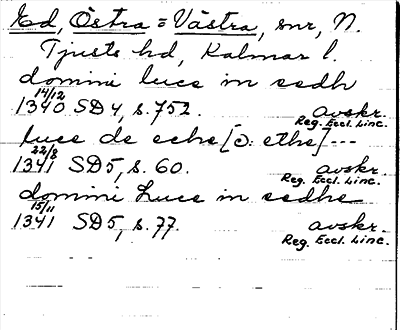 Ed, Östra = Västra, snr, N.
Tjusts hd, Kalmar l.
domini luce in eedh
14/12
1340 SD4, s. 752. avskr.
Reg. Eccl. Linc.
luce de eche [ɔ: ethe] ---
22/8
1341 SD5, s. 60. avskr.
Reg. Eccl. Linc.
domini Luce in eedhe
15/11
1341 SD5, s. 77. avskr.
Reg. Eccl. Linc.